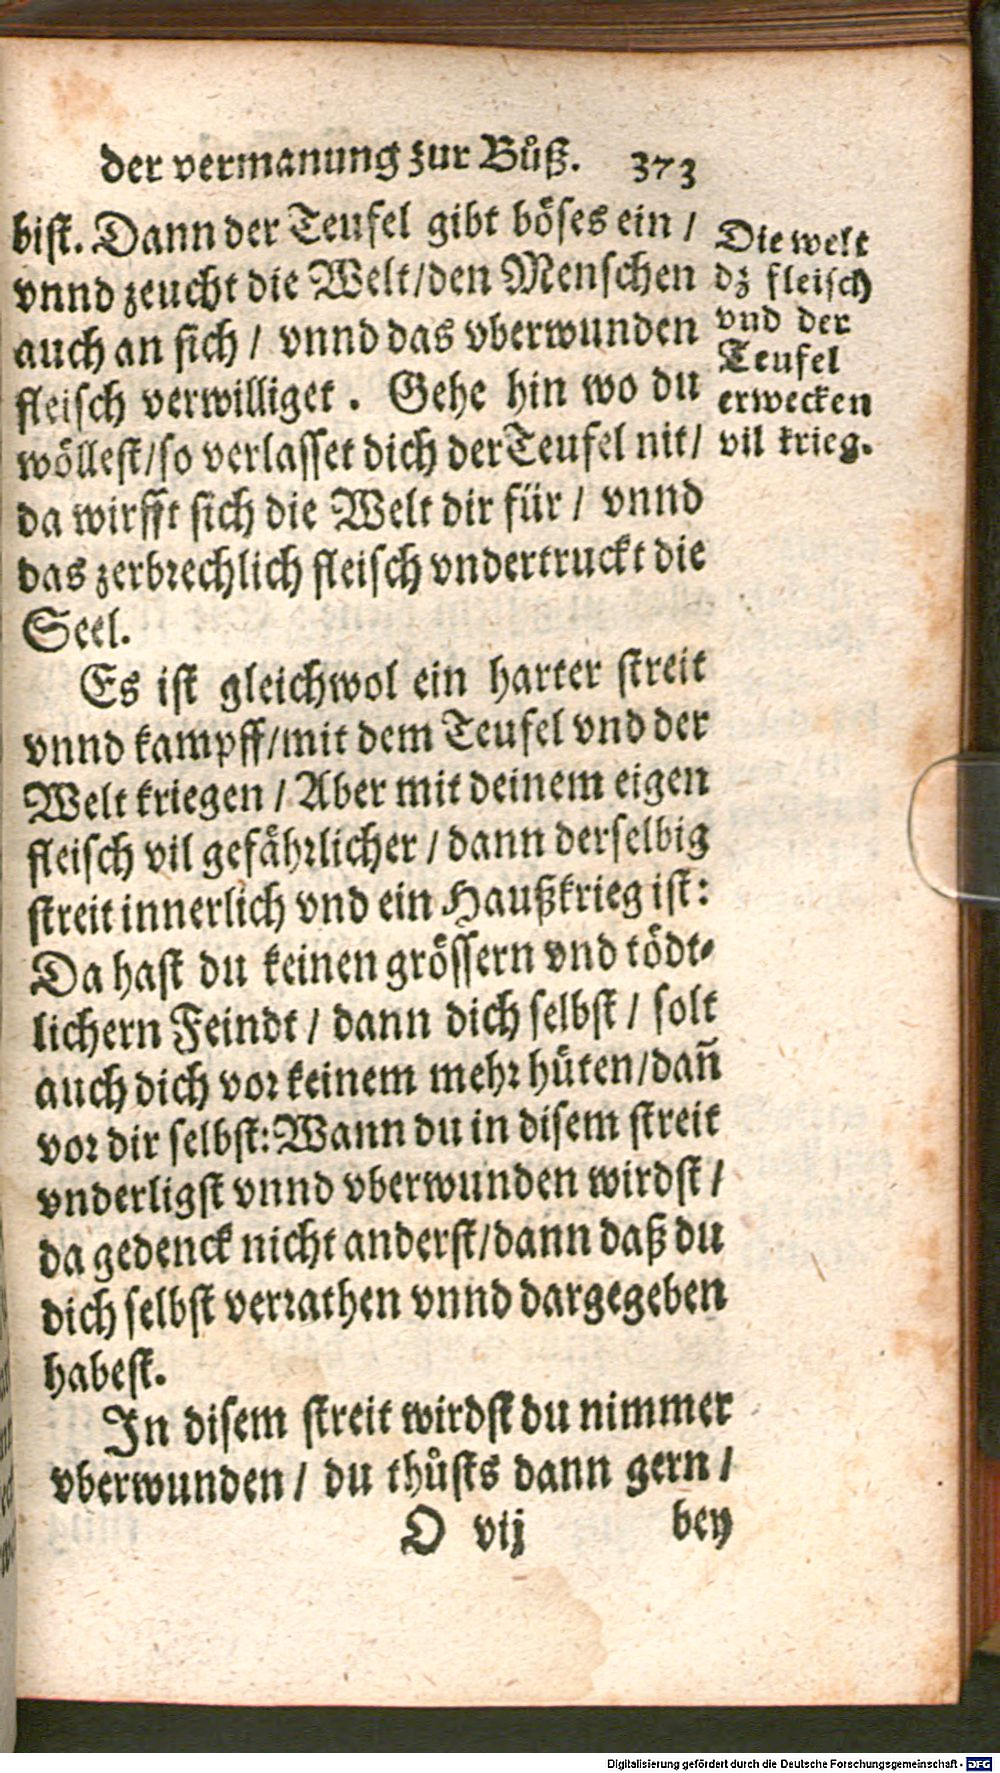 der vermanung zur Bůß. 373
bist. Dann der Teufel gibt böses ein /
vnnd zeucht die Welt/den Menschen
auch an sich / vnnd das vberwunden
fleisch verwilliget. Gehe hin wo du
wöllest/so verlasset dich der Teufel nit/
da wirfft sich die Welt dir für / vnnd
das zerbrechlich fleisch vndertruckt die
Seel.
Es ist gleichwol ein harter streit
vnnd kampff/mit dem Teufel vnd der
Welt kriegen / Aber mit deinem eigen
fleisch vil gefährlicher / dann derselbig
streit innerlich vnd ein Haußkrieg ist:
Da hast du keinen grössern vnd tödt-
lichern Feindt / dann dich selbst / solt
auch dich vor keinem mehr hüten/dañ
vor dir selbst: Wann du in disem streit
vnderligst vnnd vberwunden wirdst /
da gedenck nicht anderst/dann daß du
dich selbst verrathen vnnd dargegeben
habest.
In disem streit wirdst du nimmer
vberwunden / du thůsts dann gern /
O vij bey
Die welt
dz fleisch
vnd der
Teufel
erwecken
vil krieg.
Digitalisierung gefördert durch die Deutsche Forschungsgemeinschaft - DFG